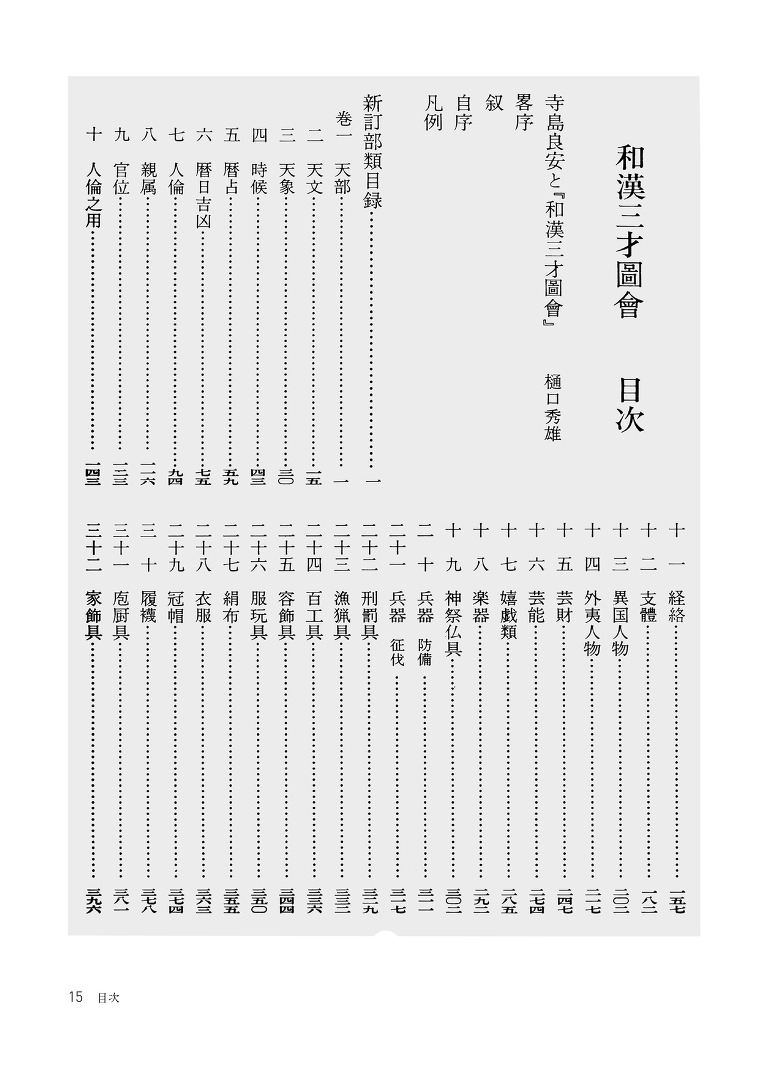 和漢三才圖會 目次
寺島良安と『和漢三才圖會』 樋口秀雄
畧序
叙
自序
凡例
新訂部類目録……一
巻一 天部……一
二 天文……一五
三 天象……三〇
四 時候……四三
五 暦占……五九
六 暦日吉凶……七五
七 人倫……九四
八 親属……一一六
九 官位……一二三
十 人倫之用……一四三
十一 経絡……一五七
十二 支體……一八二
十三 異国人物……二〇三
十四 外夷人物……二一七
十五 芸財……二四七
十六 芸能……二七四
十七 嬉戯類……二八五
十八 楽器……二九二
十九 神祭仏具……三〇二
二十 兵器 防備……三一一
二十一 兵器 征伐……三一七
二十二 刑罰具……三二九
二十三 漁猟具……三三二
二十四 百工具……三三六
二十五 容飾具……三四四
二十六 服玩具……三五〇
二十七 絹布……三五五
二十八 衣服……三六三
二十九 冠帽……三七四
三十 履襪……三七八
三十一 庖厨具……三八一
三十二 家飾具……三九六
15 目次